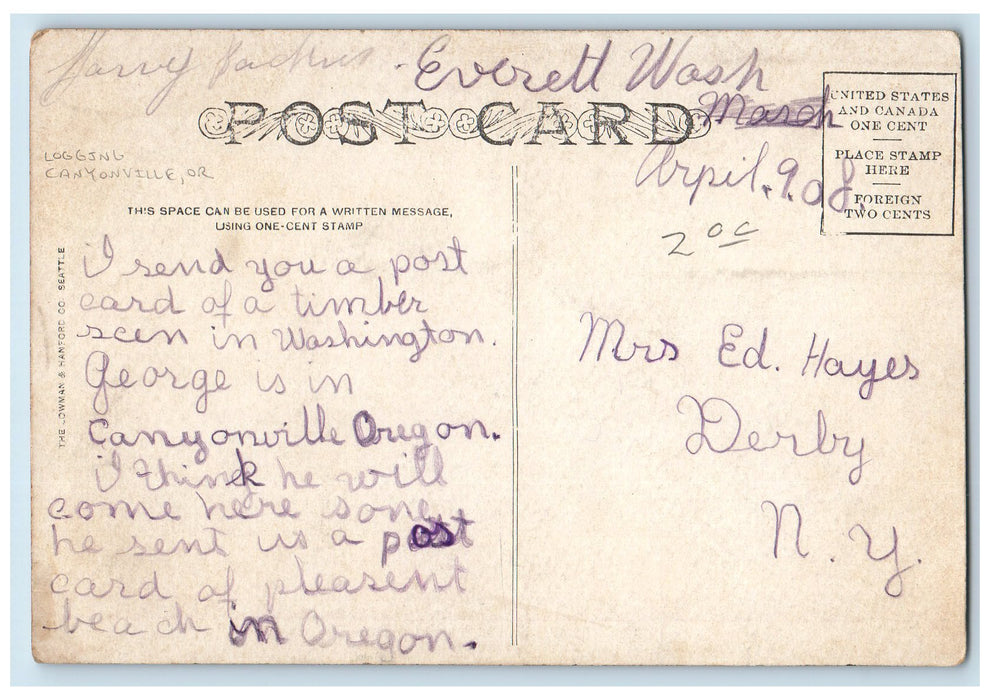 Harry
Everett Wash
POST CARD
March
Arpil. 9. 08.
UNITED STATES
AND CANADA
ONE CENT
PLACE STAMP
HERE
FOREIGN
TWO CENTS
LOGGING
CANYONVILLE, OR
2 00
THIS SPACE CAN BE USED FOR A WRITTEN MESSAGE,
USING ONE-CENT STAMP
THE LOWMAN & HANFORD CO SEATTLE
I send you a post
card of a timber
scen in Washington.
George is in
Canyonville Oregon.
I think he will
come here sone.
he sent us a post
card of pleasent
beach in Oregon.
Mrs Ed. Hayes
Derby
N. Y.